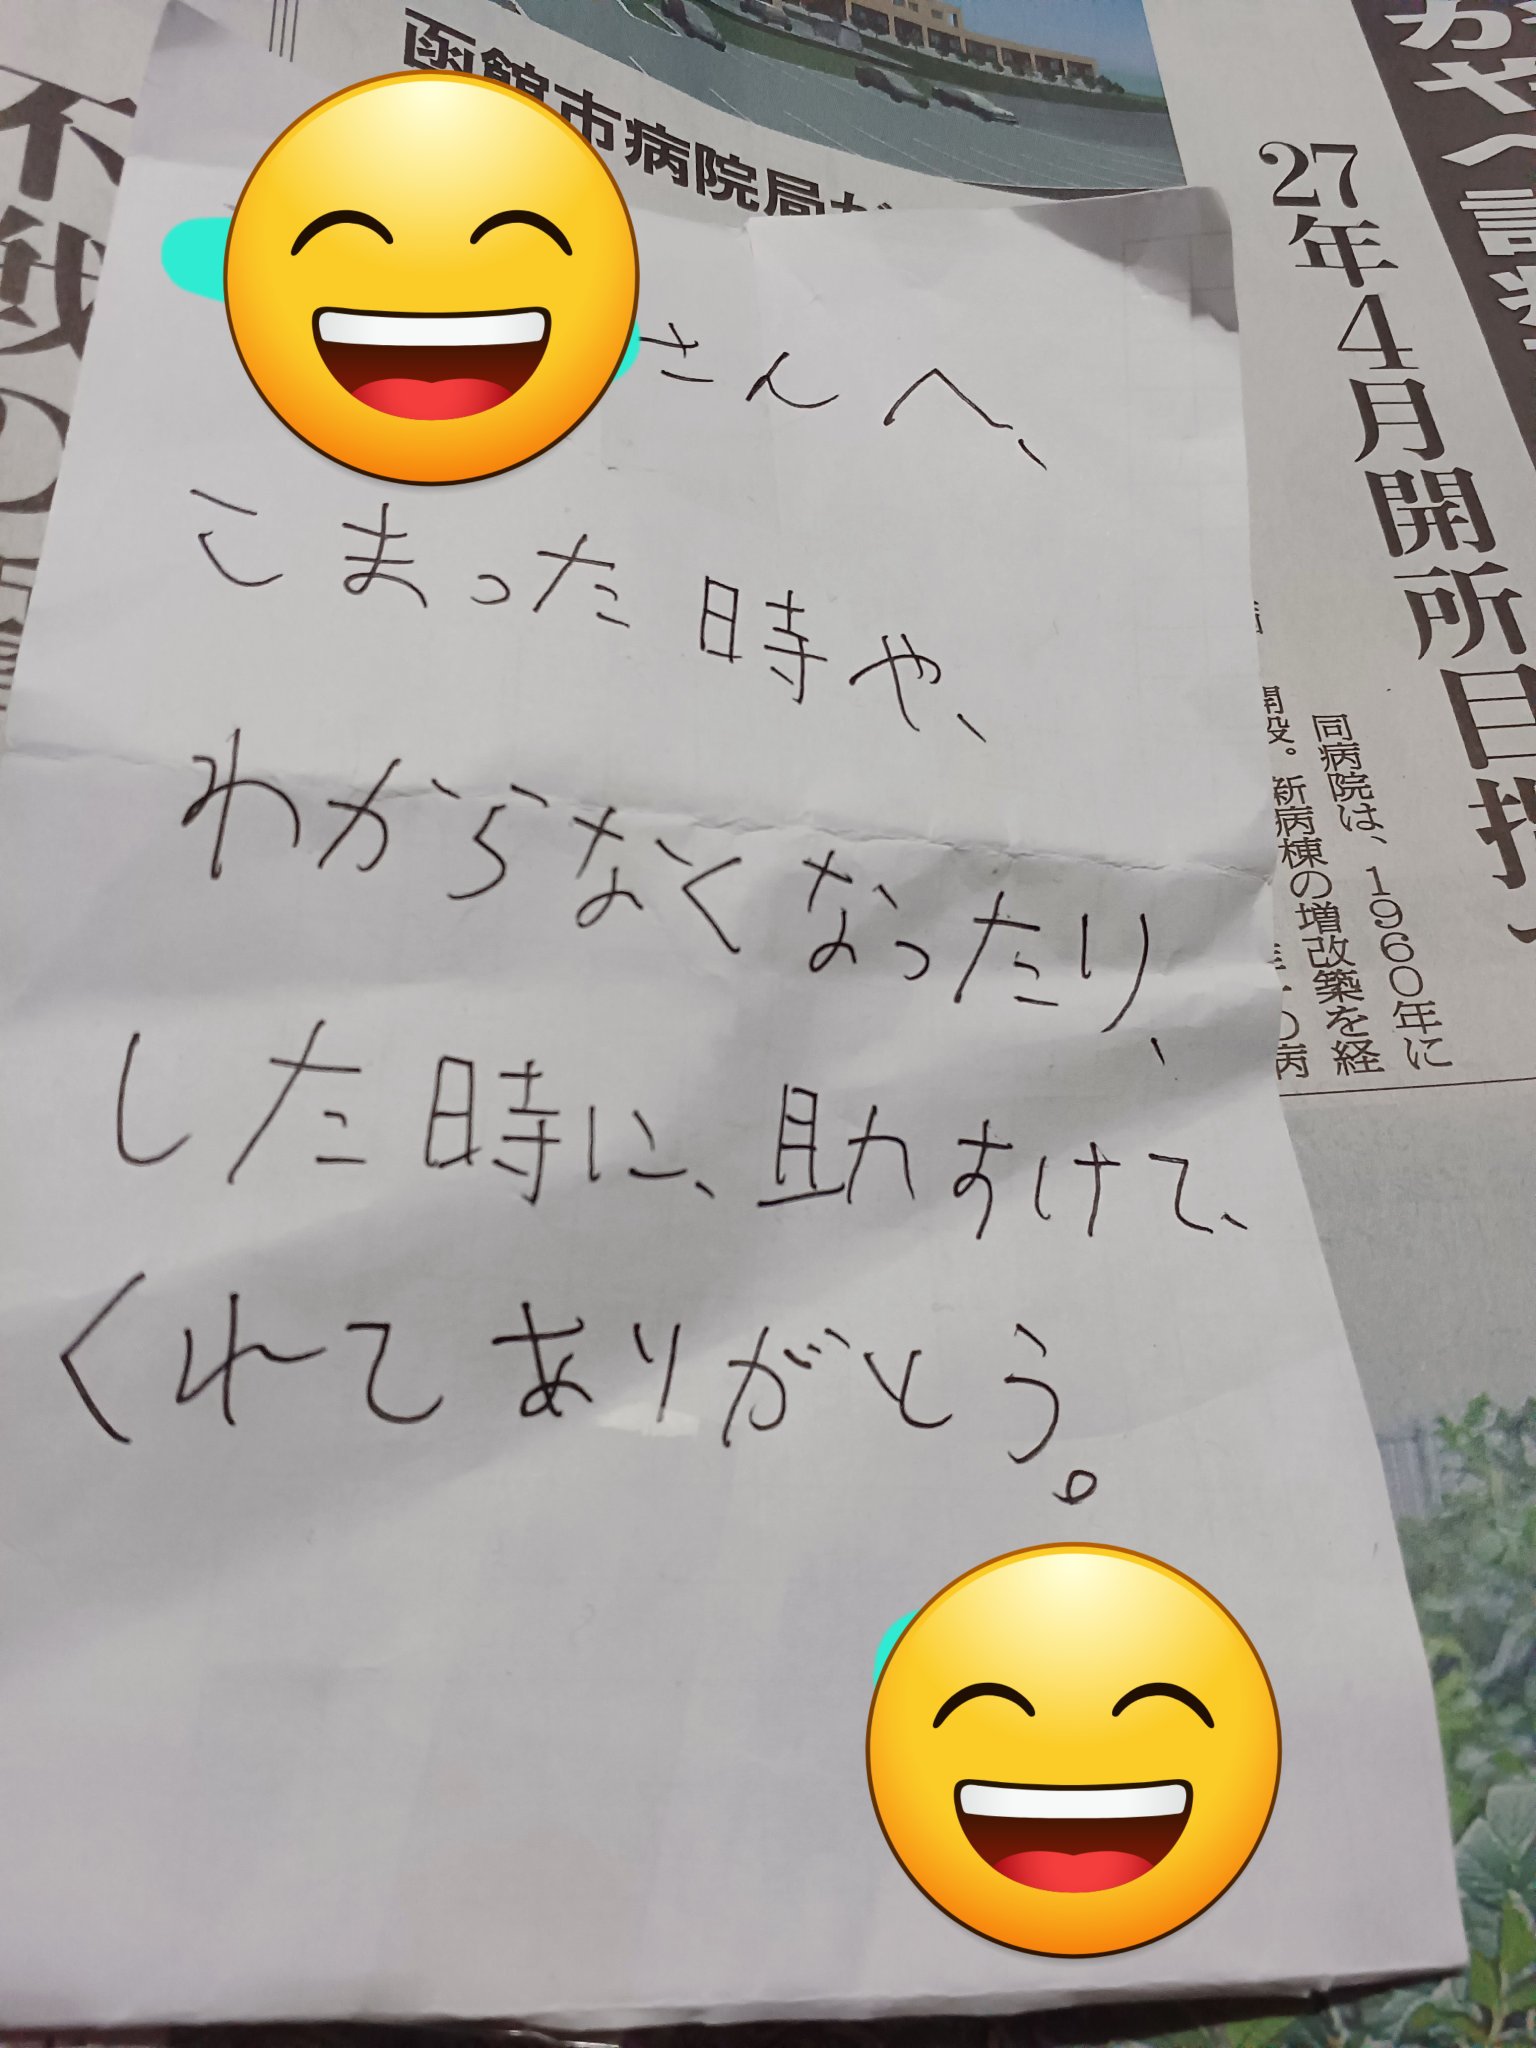 函館市病院局が
27年4月開所目指
がやへ
不戦の
さんへ、
こまった時や、
わからなくなったり、
した時に、助すけて、
くれてありがとう。
同病院は、1960年に
開設。新病棟の増改築を経